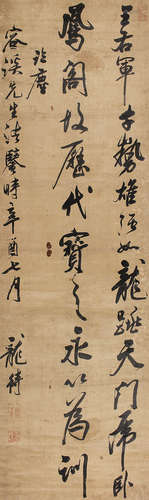 王右軍字勢雄强如龍跳天門虎卧
鳳閣故歷代寶之永以為訓
塵
容溪先生法鑒時辛酉七月
龍